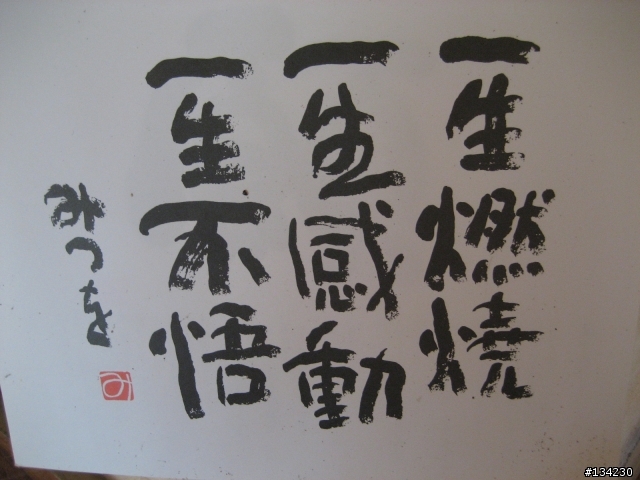 一生燃焼
一生感動
一生不悟
みつを
み
#134230